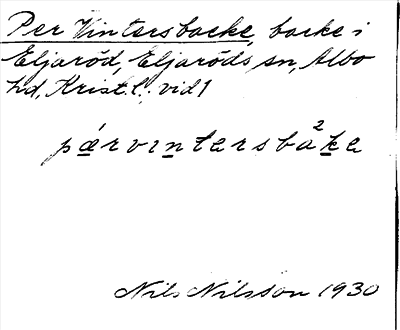 Per Vintersbacke, backe i
Eljaröd, Eljaröds sn, Albo
hd, Krist. l. vid 1
pǽrvintersbà²ke
Nils Nilsson 1930